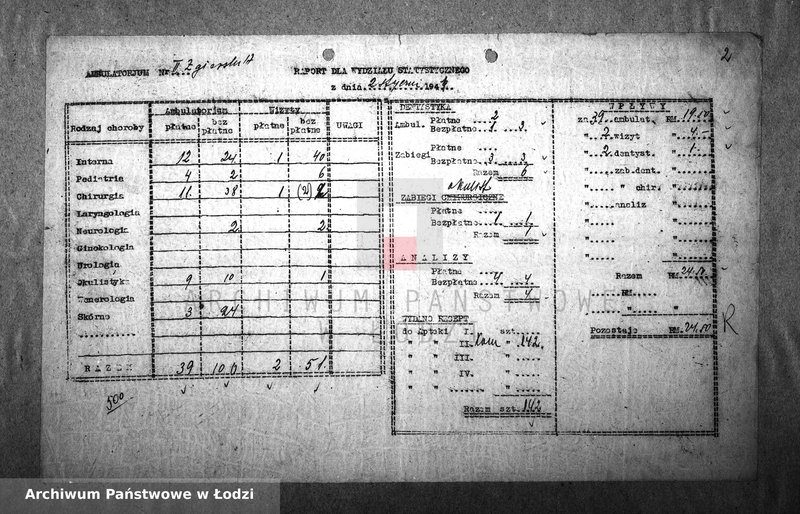 2
AMBULATORJUM Nr II Zgierska 17
RAPORT DLA WYDZIAŁU STATYSTYCZNEGO
z dnia 2 194
Rodzaj choroby Ambulatorjum Wizyty UWAGI
płatne bez płatne płatne bez płatne
Interna 12 24 1 40
Pediatria 4 2 6
Chirurgia 11 38 1 (2) 2
Laryngologia
Neurologia 2 2
Ginekologia
Urologia
Okulistyka 9 10 1
Wenerologia
Skórne 3 24
RAZEM 39 100 2 51
500
DENTYSTYKA
Ambul. Płatne 2
Bezpłatne 1 3
Zabiegi Płatne
Bezpłatne 3 3
Razem 6
ZABIEGI CHIRURGICZNE
Płatne
Bezpłatne 1 1
Razem 1
ANALIZY
Płatne
Bezpłatne 4 4
Razem 4
WYDANO RECEPT
do Apteki I. szt.
" " II. " 142
" " III. "
" " IV. "
" " "
Razem szt. 142
WPŁYWY
za 39 ambulat. RM. 19.50
" 2 wizyt " 4.-
" 2 dentyst. " 1.-
" zab.dent. "
" " chir. "
" analiz "
" "
" "
Razem RM. 24.50
RM.
"
Pozostaje RM. 24.50
R
ARCHIWUM PAŃSTWOWE
W ŁODZI
Archiwum Państwowe w Łodzi